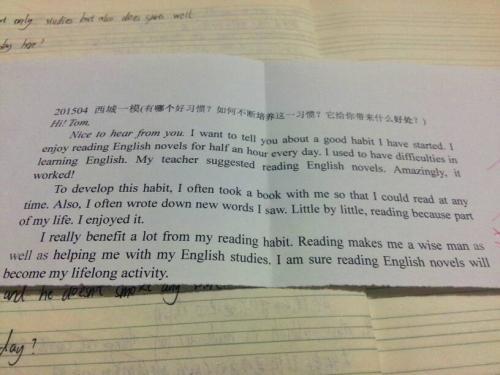 only studies but also does sports well
here?
201504 西城一模(有哪个好习惯？如何不断培养这一习惯？它给你带来什么好处？)
Hi! Tom,
Nice to hear from you. I want to tell you about a good habit I have started. I
enjoy reading English novels for half an hour every day. I used to have difficulties in
learning English. My teacher suggested reading English novels. Amazingly, it
worked!
To develop this habit, I often took a book with me so that I could read at any
time. Also, I often wrote down new words I saw. Little by little, reading because part
of my life. I enjoyed it.
I really benefit a lot from my reading habit. Reading makes me a wise man as
well as helping me with my English studies. I am sure reading English novels will
become my lifelong activity.
and he doesn't smoke any
day?